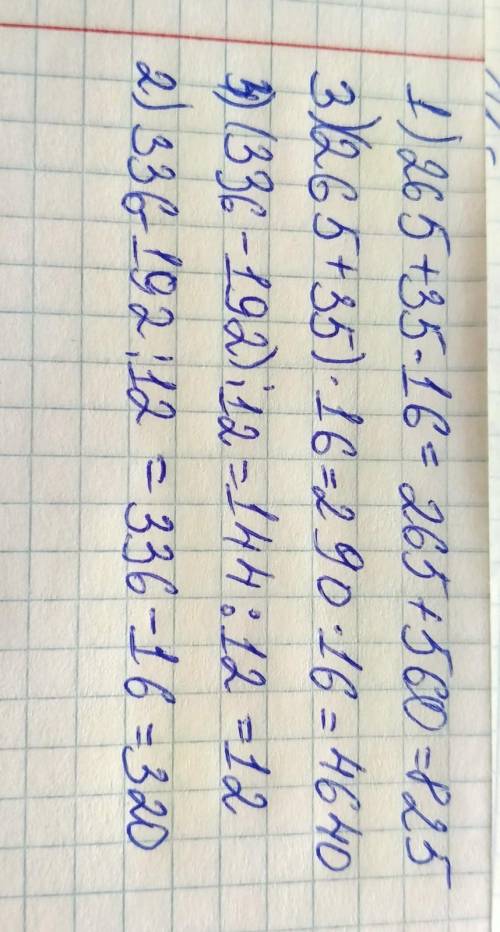 1) 265+35·16=265+560=825
3)(265+35)·16=290·16=4640
4)(336-192):12=144:12=12
2) 336-192:12=336-16=320